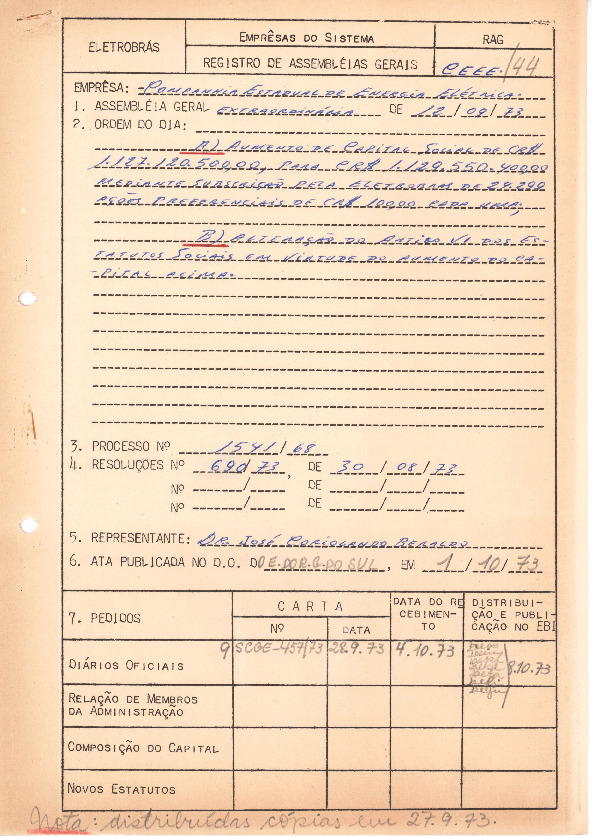 ELETROBRÁS
EMPRÊSAS DO SISTEMA
REGISTRO DE ASSEMBLÉIAS GERAIS
RAG
CEEE-/44
EMPRÊSA: COMPANHIA ESTADUAL DE ENERGIA ELÉTRICA.
1. ASSEMBLÉIA GERAL EXTRAORDINÁRIA DE 12/09/73
2. ORDEM DO DIA:
A) AUMENTO DE CAPITAL SOCIAL DE CR$
1.127.120.500,00, PARA CR$ 1.129.550.400,00
MEDIANTE SUBSCRIÇÃO PELA ELETROBRAS DE 24.299
AÇÕES PREFERENCIAIS DE CR$ 100,00 CADA UMA;
B) ALTERAÇÃO DO ARTIGO VI DOS ES-
TATUTOS SOCIAIS EM VIRTUDE DO AUMENTO DO CA-
-PITAL ACIMA.
3. PROCESSO Nº 1541/68
4. RESOLUÇÕES Nº 690/73, DE 30/08/73
Nº / DE / /
Nº / DE / /
5. REPRESENTANTE: DR. JOSÉ CORIOLANDO BERALDO
6. ATA PUBLICADA NO D.O. DO E. DO R.G. DO SUL, EM 1/10/73
7. PEDIDOS
CARTA
Nº
DATA
DATA DO RE
CEBIMEN-
TO
DISTRIBUI-
ÇÃO E PUBLI-
CAÇÃO NO EBI
DIÁRIOS OFICIAIS
9 SCGE-457/73 28.9.73 4.10.73 8.10.73
RELAÇÃO DE MEMBROS
DA ADMINISTRAÇÃO
COMPOSIÇÃO DO CAPITAL
NOVOS ESTATUTOS
Nota: distribuídas cópias em 27.9.73.